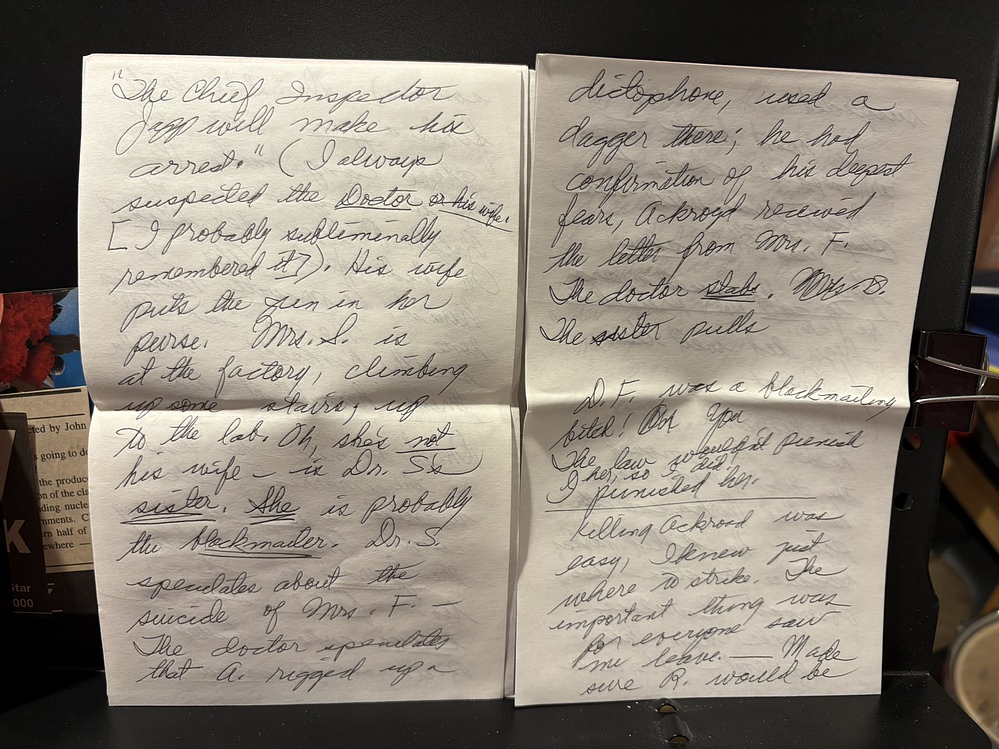 "The Chief Inspector
Japp will make his
arrest." (I always
suspected the Doctor or his wife.
[I probably subliminally
remembered it?]). His wife
puts the gun in her
purse. Mrs. S. is
at the factory, climbing
up some stairs, up
to the lab. Oh, she's not
his wife – is Dr. S's
sister. She is probably
the blackmailer. Dr. S.
speculates about the
suicide of Mrs. F. –
The doctor speculates
that A. rigged up a
dictophone, used a
dagger there; he had
confirmation of his deepest
fears, Ackroyd received
the letter from Mrs. F.
The doctor stabs.
The sister pulls
D. F. was a blackmailing
bitch! You
The law wouldn't punish
her, so I did
I punished her.
Killing Ackroad was
easy, I knew just
where to strike. The
important thing was
for everyone saw
me leave. — Made
sure R. would be
ted by John
s going to de
the produc
on of the cla
ding nucle
nments. C
rn half of
ewhere —
K
Star
000